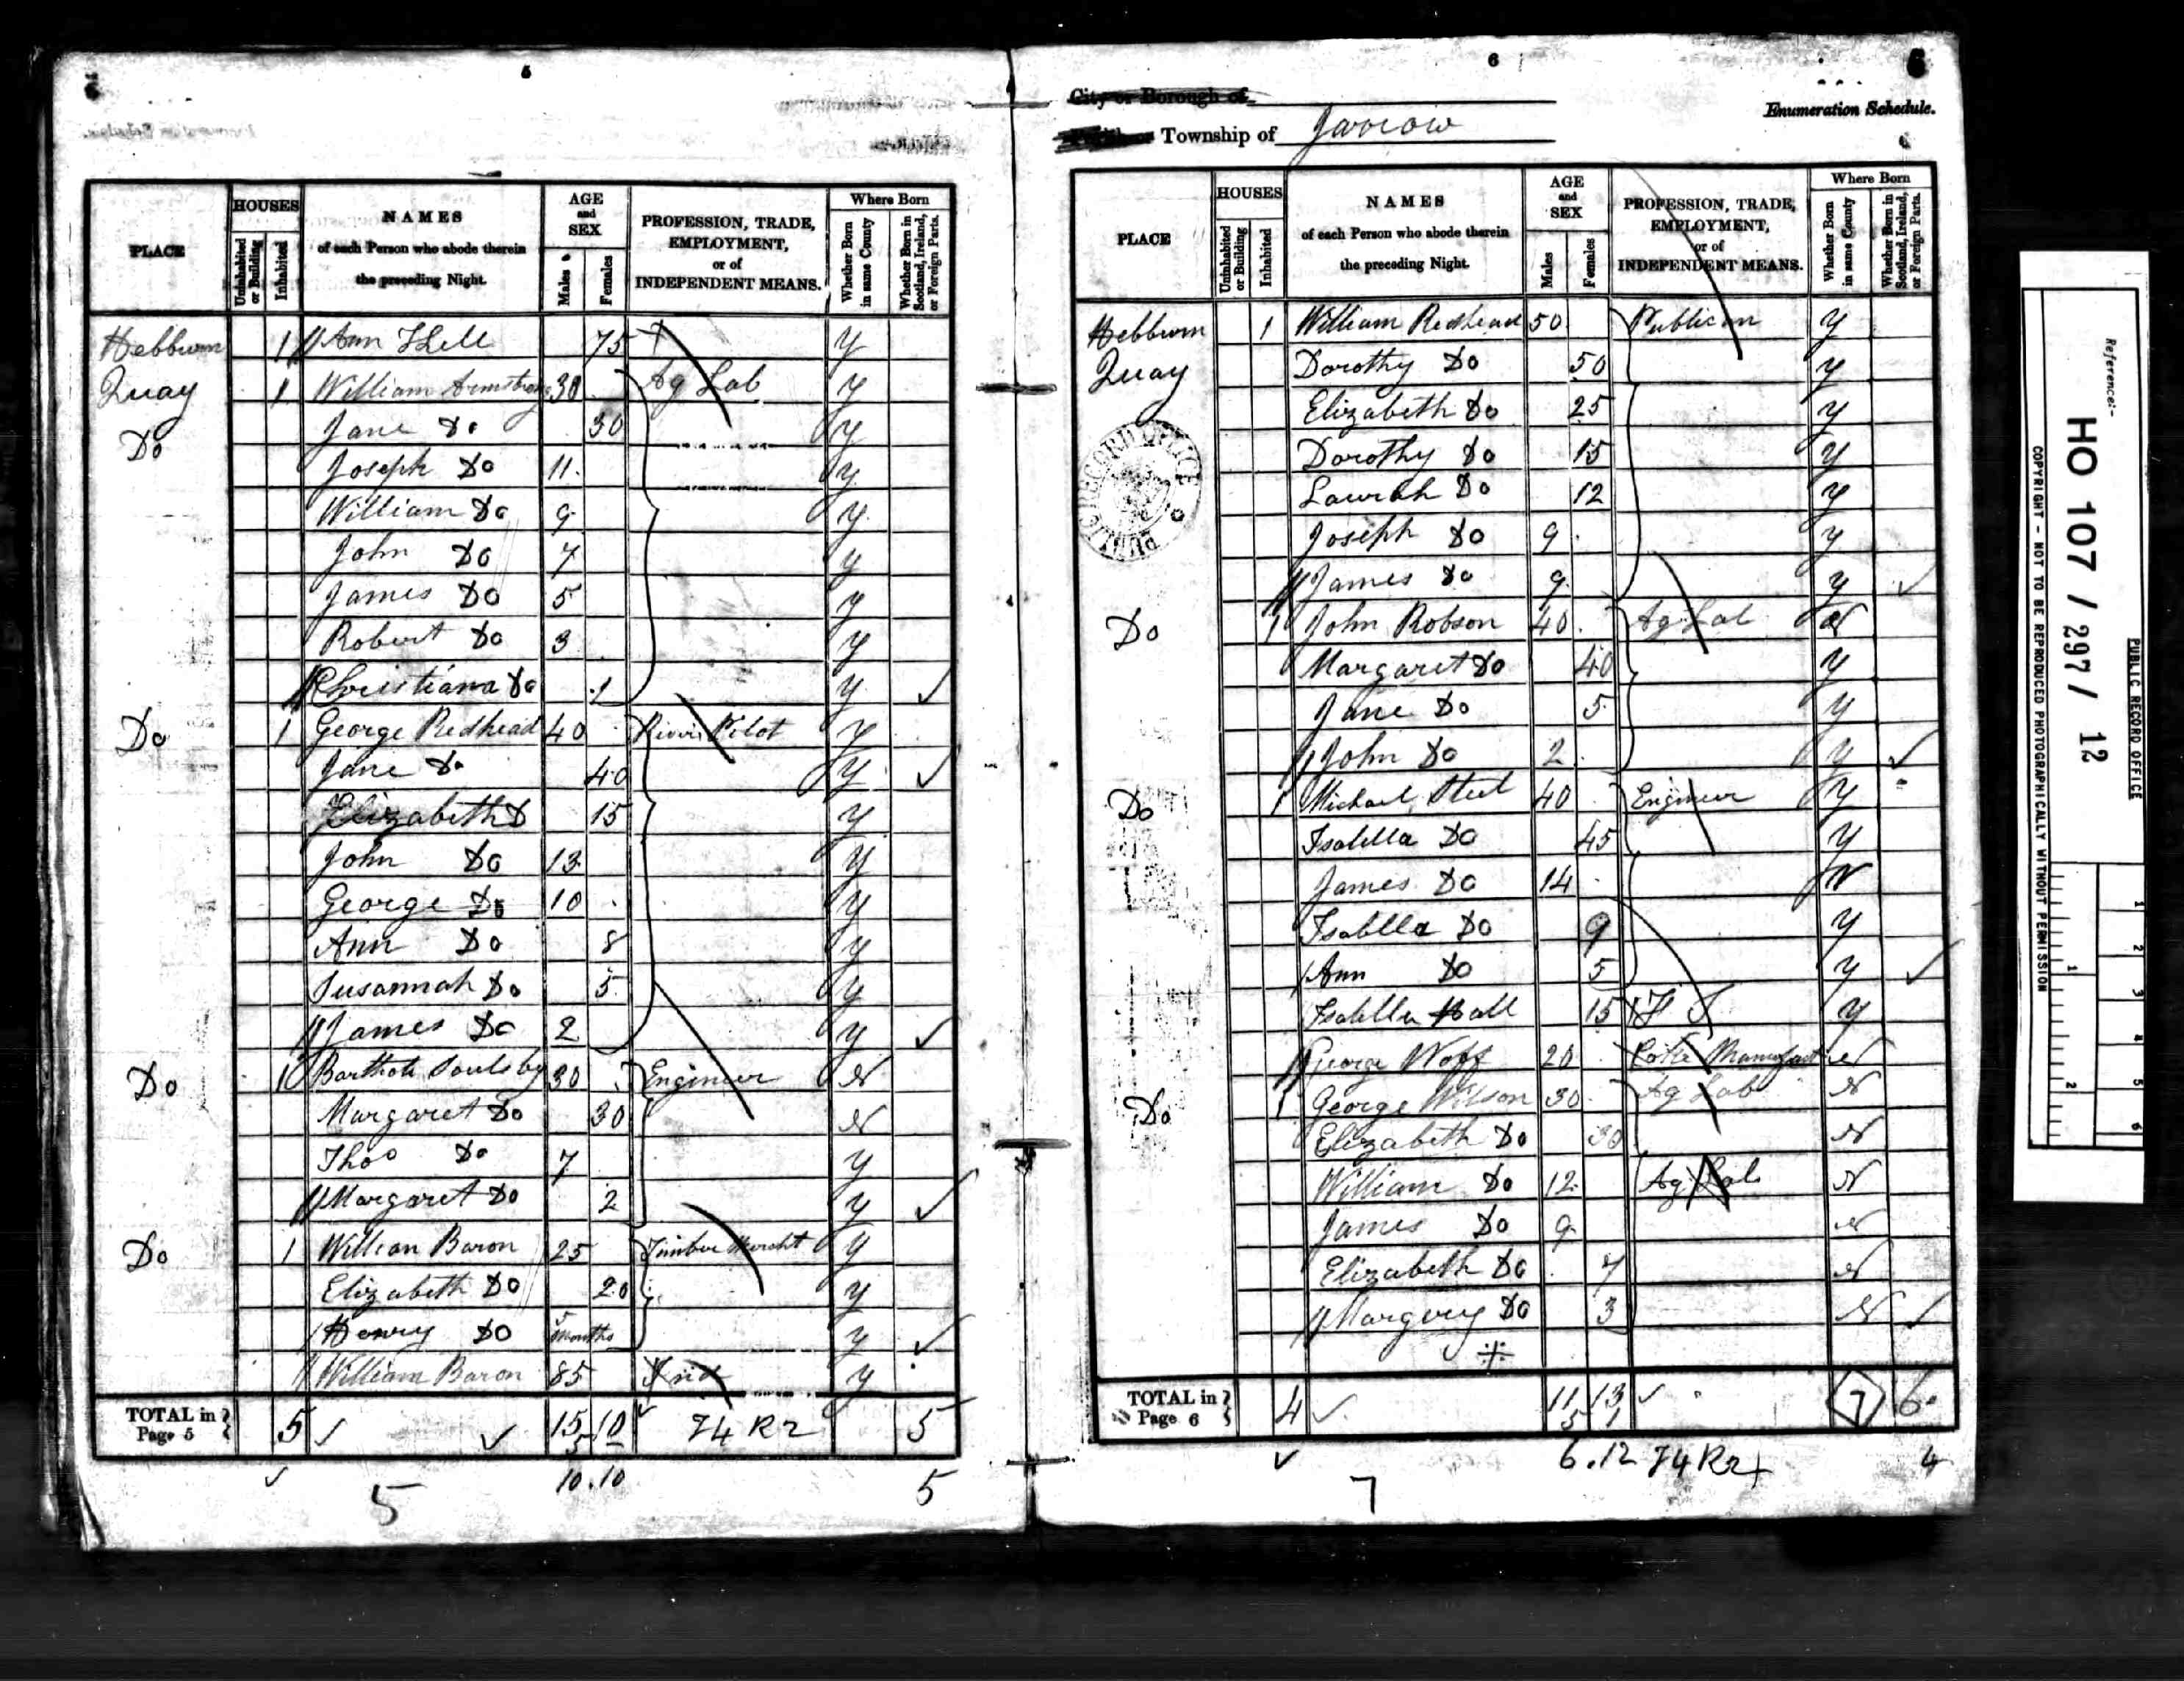 5
PLACE
HOUSES
Uninhabited or Building
Inhabited
NAMES
of each Person who abode therein
the preceding Night.
AGE and SEX
Males
Females
PROFESSION, TRADE,
EMPLOYMENT,
or of
INDEPENDENT MEANS.
Where Born
Whether Born in same County
Whether Born in Scotland, Ireland, or Foreign Parts.
Hebburn 1 Ann 75 y
Quay 1 William Armstrong 30 Ag Lab y
Do Jane Do 30 y
Joseph Do 11 y
William Do 9 y
John Do 7 y
James Do 5 y
Robert Do 3 y
Christiana Do 1 y
Do 1 George Redhead 40 River Pilot y
Jane Do 40 y
Elizabeth D 15 y
John Do 13 y
George Do 10 y
Ann Do 8 y
Susannah Do 5 y
James Do 2 y
Do 1 Barthol Soulsby 30 Engineer N
Margaret Do 30 N
Thos Do 7 y
Margaret Do 2 y
Do 1 William Baron 25 Timber Mercht y
Elizabeth Do 20 y
Henry Do 5 months y
William Baron 85 Ind y
TOTAL in Page 5 5 15 10 74 R2 5
5
10.10 5
5
6
6
City or Borough of
Township of Jarrow
Enumeration Schedule.
PLACE
HOUSES
Uninhabited or Building
Inhabited
NAMES
of each Person who abode therein
the preceding Night.
AGE and SEX
Males
Females
PROFESSION, TRADE,
EMPLOYMENT,
or of
INDEPENDENT MEANS.
Where Born
Whether Born in same County
Whether Born in Scotland, Ireland, or Foreign Parts.
Hebburn 1 William Redhead 50 Publican y
Quay Dorothy Do 50 y
Elizabeth Do 25 y
Dorothy Do 15 y
Laurah Do 12 y
Joseph Do 9 y
James Do 9 y
Do 1 John Robson 40 Ag Lab N
Margaret Do 40 y
Jane Do 5 y
John Do 2 y
Do 1 Michael Steel 40 Engineer y
Isabella Do 45 y
James Do 14 N
Isablla Do 9 y
Ann Do 5 y
Isabella Hall 15 F S y
George Woff 20 Coke Manufact N
Do 1 George Wilson 30 Ag Lab N
Elizabeth Do 30 N
William Do 12 Ag Lab N
James Do 9 N
Elizabeth Do 7 N
Margery Do 3 N
TOTAL in Page 6 4 11 13 7 6
5 1
6.12 74 R2 4
7
Reference:-
HO 107 / 297 / 12
PUBLIC RECORD OFFICE
COPYRIGHT - NOT TO BE REPRODUCED PHOTOGRAPHICALLY WITHOUT PERMISSION
1 2 3 4 5 6
1 2